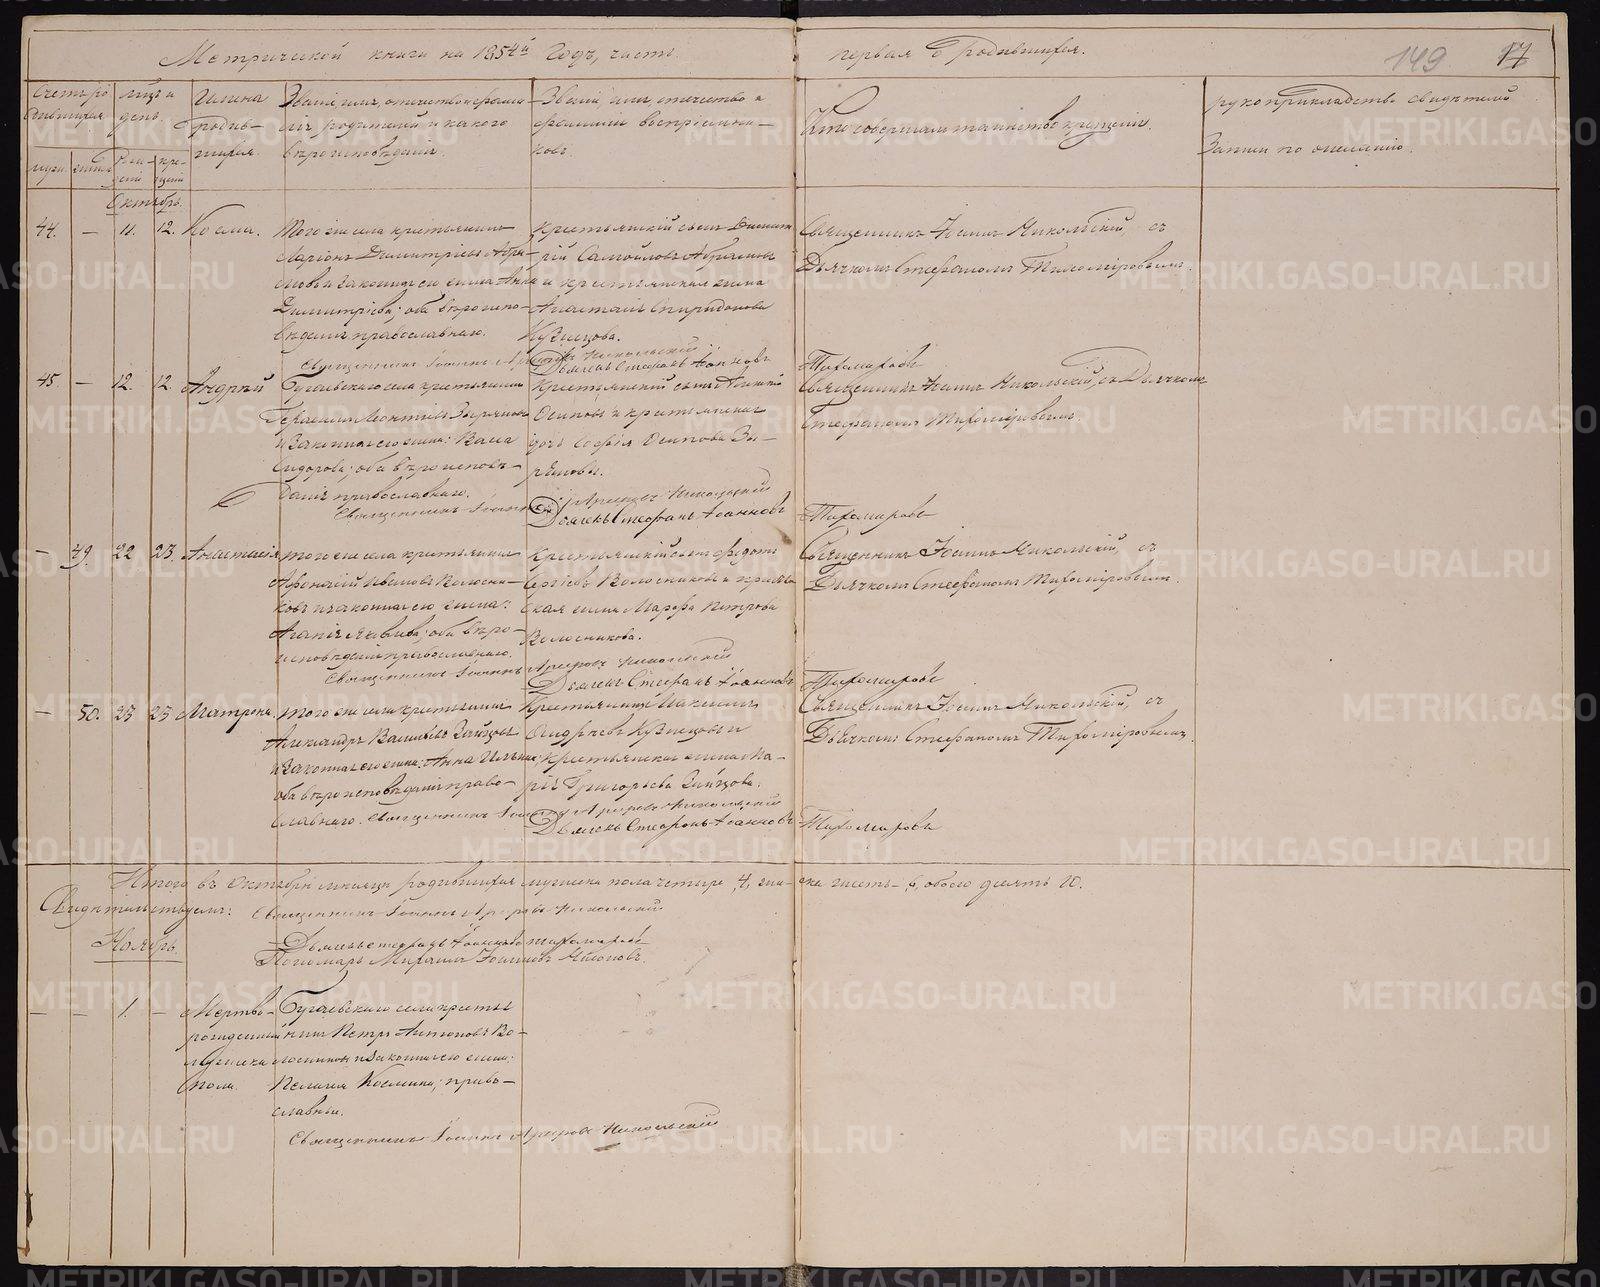 Метрической книги на 1854й годъ, часть первая о родившихся.
149 17
Счетъ ро- дившихся
мѣсяцъ и день.
Имена родив- шихся.
Званіе, имя, отчество и фами- лія родителей и какого вѣроисповѣданія.
Званіе, имя, отчество и фамилія воспріемни- ковъ.
Кто совершалъ таинство крещенія.
рукоприкладство свидѣтелей записи по желанію.
муж. женск. рож- денія кре- щенія
Октябрь.
44. — 11. 12. Косма.
Того же села крестьянинъ
Ларіонъ Димитріевъ Абра-
мовъ и законная его жена Анна
Димитріева; оба вѣроиспо-
вѣданія православнаго.
Крестьянскій сынъ Димит
рій Самойловъ Абрамовъ
и крестьянская жена
Анастасія Спиридонова
Кузнецова.
Священникъ Іоаннъ Никольскій, съ
Дьячкомъ Стефаномъ Тихоміровымъ.
Священникъ Іоаннъ Арефьевъ Никольскій
Дьячекъ Стефанъ Іоанновъ Тихомировъ
45. — 12. 12. Андрей
Бугаевскаго села крестьянинъ
Герасимъ Леонтіевъ Зырянов
и законная его жена: Васса
Сидорова; оба вѣроисповѣ-
данія православнаго.
Крестьянскій сынъ Аѳанасій
Осиповъ и крестьянская
дочь Софія Осипова Зы-
рянова.
Священникъ Іоаннъ Никольскій, съ Дьячкомъ
Стефаномъ Тихоміровымъ.
Священникъ Іоаннъ Арефьевъ Никольскій
Дьячекъ Стефанъ Іоанновъ Тихомировъ
— 49. 22 23. Анастасія
того же села крестьянинъ
Афонасій Ивановъ Колосни-
ковъ и законная его жена:
Агапія Яковлева; оба вѣро-
исповѣданія православнаго.
Крестьянскій сынъ Федотъ
Сергѣевъ Волосниковъ и крестьян
ская жена Марфа Петрова
Волосникова.
Священникъ Іоаннъ Никольскій, съ
Дьячкомъ Стефаномъ Тихоміровымъ.
Священникъ Іоаннъ Арефьевъ Никольскій
Дьячекъ Стефанъ Іоанновъ Тихомировъ
— 50. 23 23 Матрона.
того же села крестьянинъ
Александръ Васильевъ Зайцовъ
и законная его жена: Анна Ильина;
оба вѣроисповѣданія право-
славнаго.
Крестьянинъ Максимъ
Андреевъ Кузнецовъ и
крестьянская жена Ма-
рія Григорьева Зайцова.
Священникъ Іоаннъ Никольскій, съ
Дьячкомъ Стефаномъ Тихоміровымъ.
Священникъ Іоаннъ Арефьевъ Никольскій
Дьячекъ Стефанъ Іоанновъ Тихомировъ
Итого въ Октябрѣ мѣсяцѣ родившихся мужеска пола четыре, 4, жен- ска шесть – 6, обоего десять 10.
Свидѣтельствуемъ: Священникъ Іоаннъ Арефьевъ Никольскій
Дьячекъ Стефанъ Іоанновъ Тихомировъ
Пономарь Михаилъ Іоанновъ
Ноябрь.
— — 1. — Мертво-
рожденный
мужеска
пола.
Бугаевскаго села кресть
янинъ Петръ Антоновъ Во-
лосниковъ и законная его жена:
Пелагея Космина; право-
славныя.
Священникъ Іоаннъ Арефьевъ Никольскій
METRIKI.GASO-URAL.RU